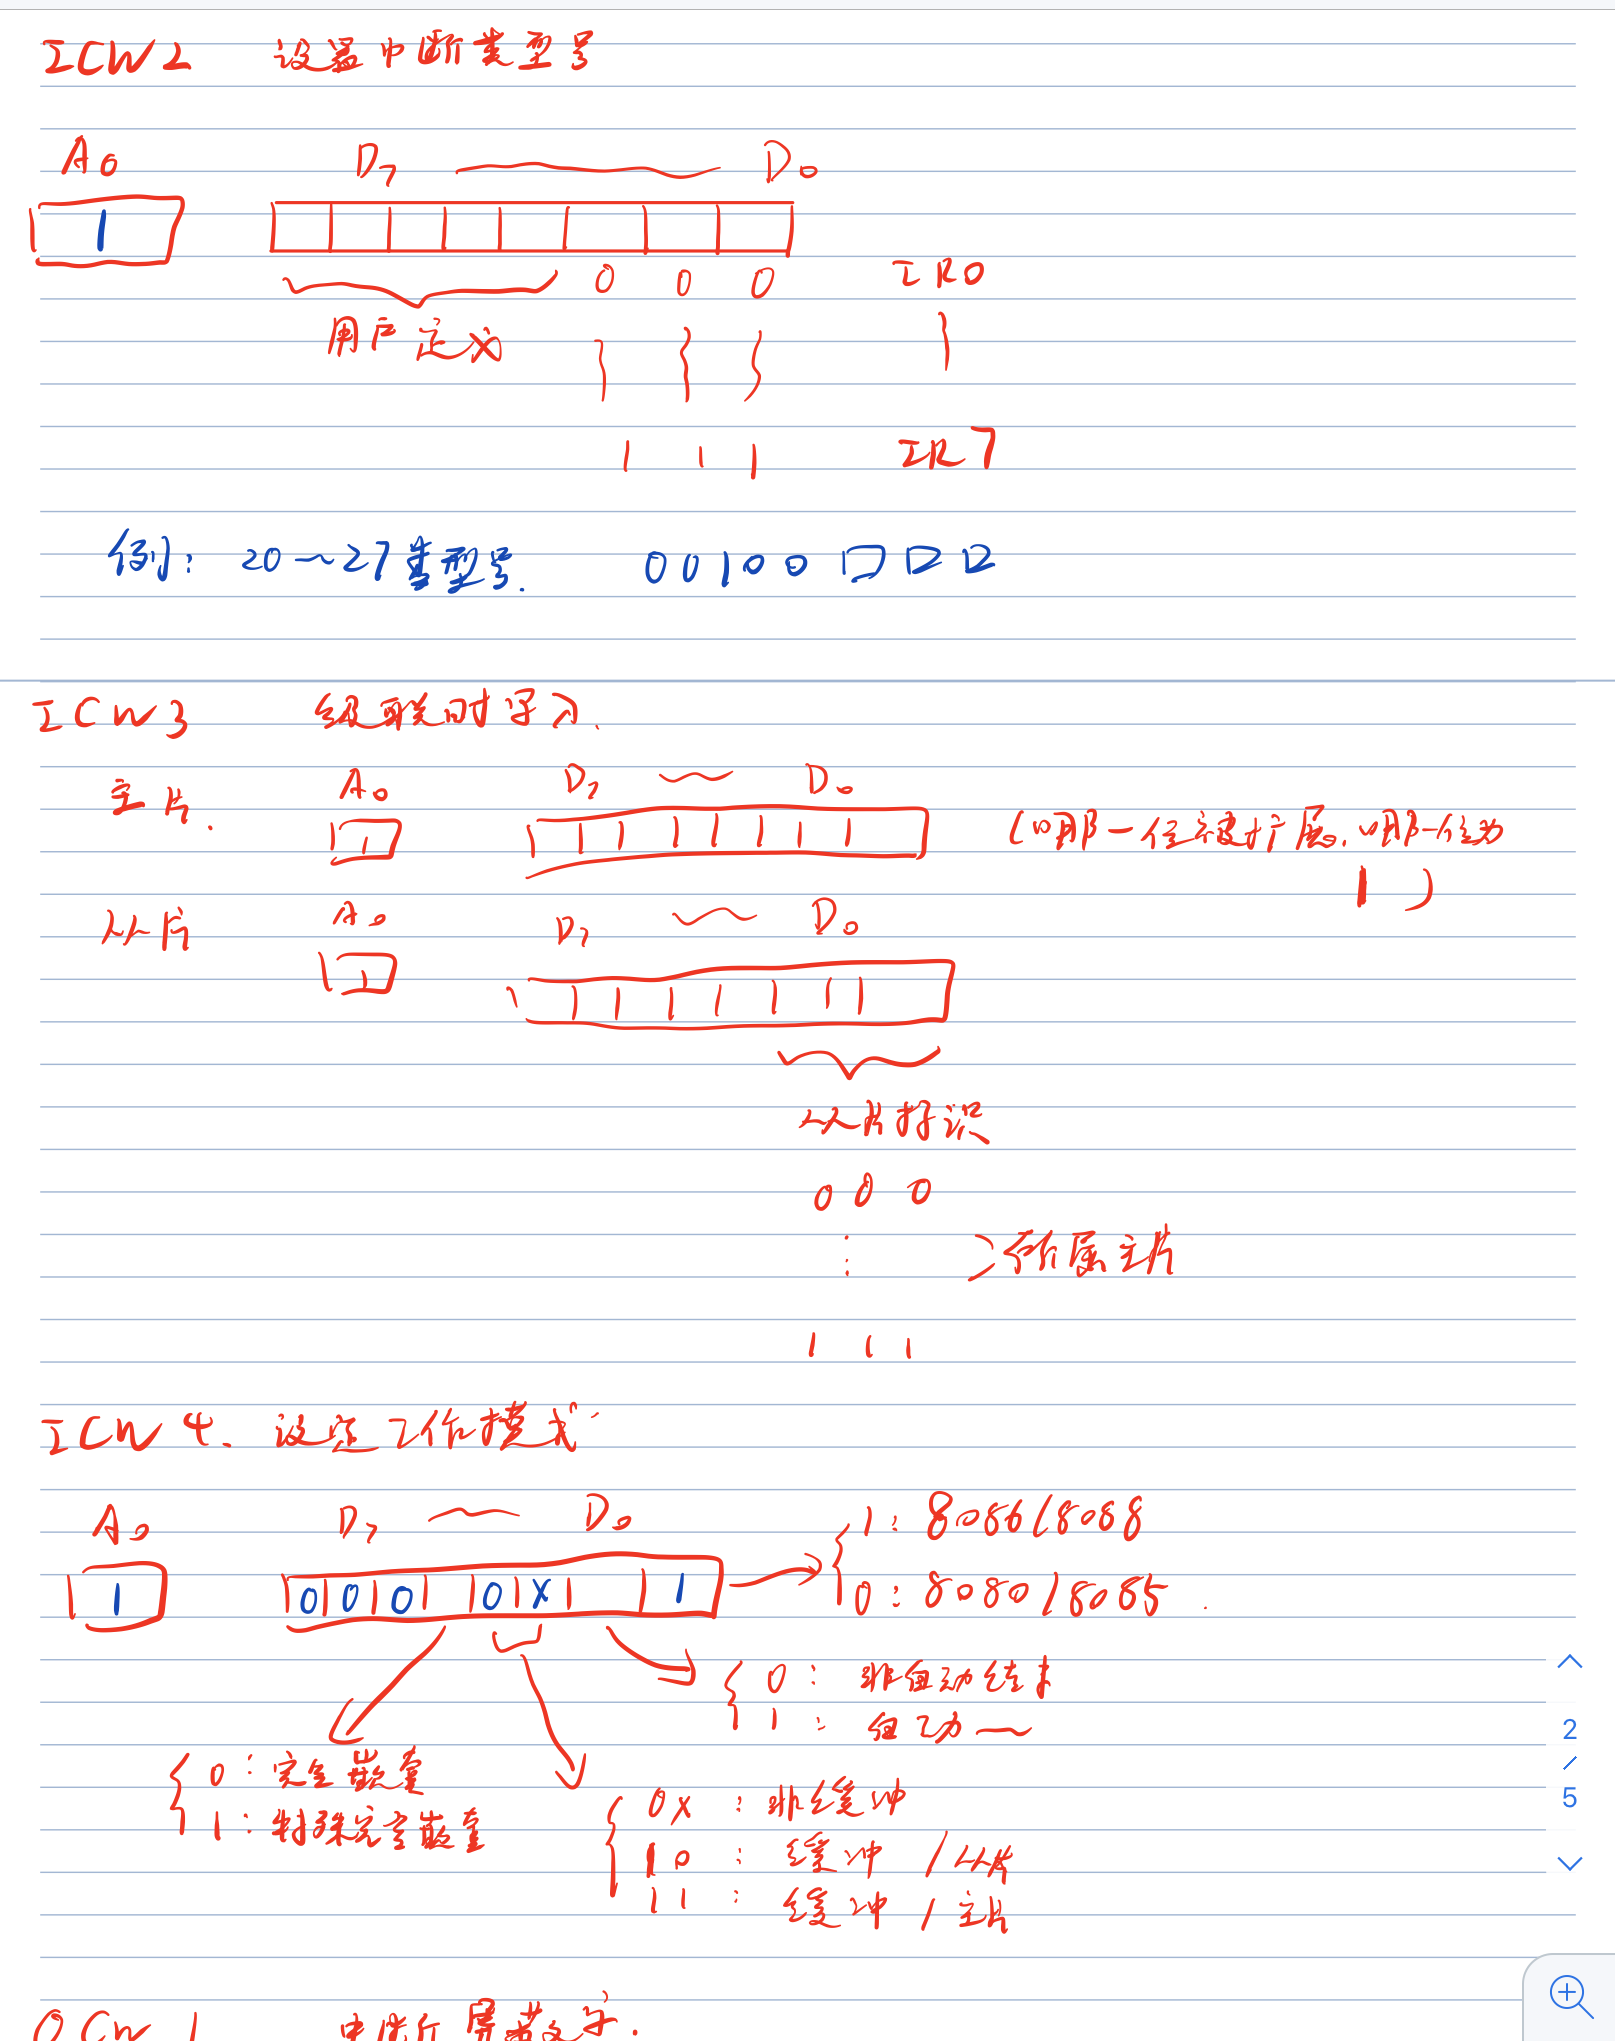 ICW2 设置中断类型号
A0 D7 D0
1
0 0 0 IR0
用户定义
1 1 1 IR7
例: 20~27类型号. 00100□□□
ICW3 级联时写入.
主片. A0 D7 ~ D0
1 (哪一位被扩展,哪一位为
1)
从片 A0 D7 ~ D0
1
从片标识
0 0 0
⋮ 所属主片
1 1 1
ICW4. 设定工作模式
A0 D7 ~ D0 1: 8086/8088
1 0 0 0 0 X 1 0: 8080/8085
0: 非自动结束
1: 自动~
0: 完全嵌套
1: 特殊完全嵌套
0x: 非缓冲
10: 缓冲/从片
11: 缓冲/主片
2
/
5
OCW1 中断屏蔽字.